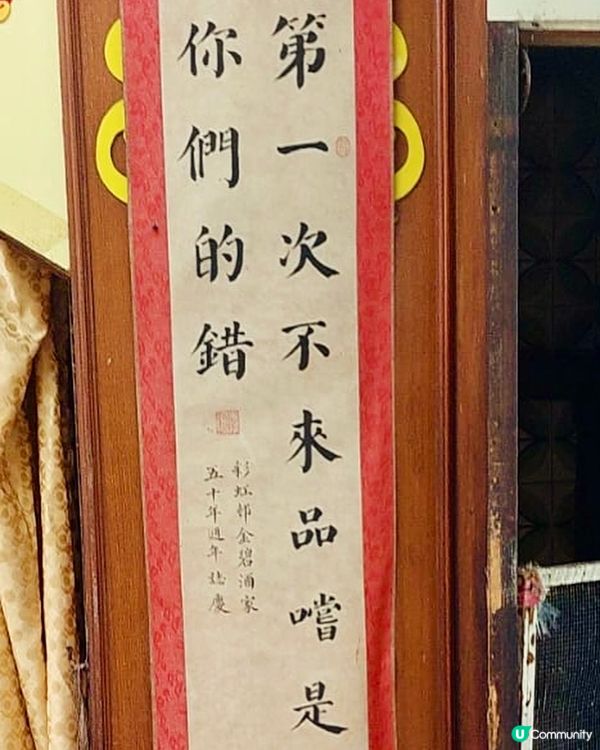 第一次不來品嚐是
你們的錯
彩虹邨金碧酒家
五十年週年誌慶
U Community